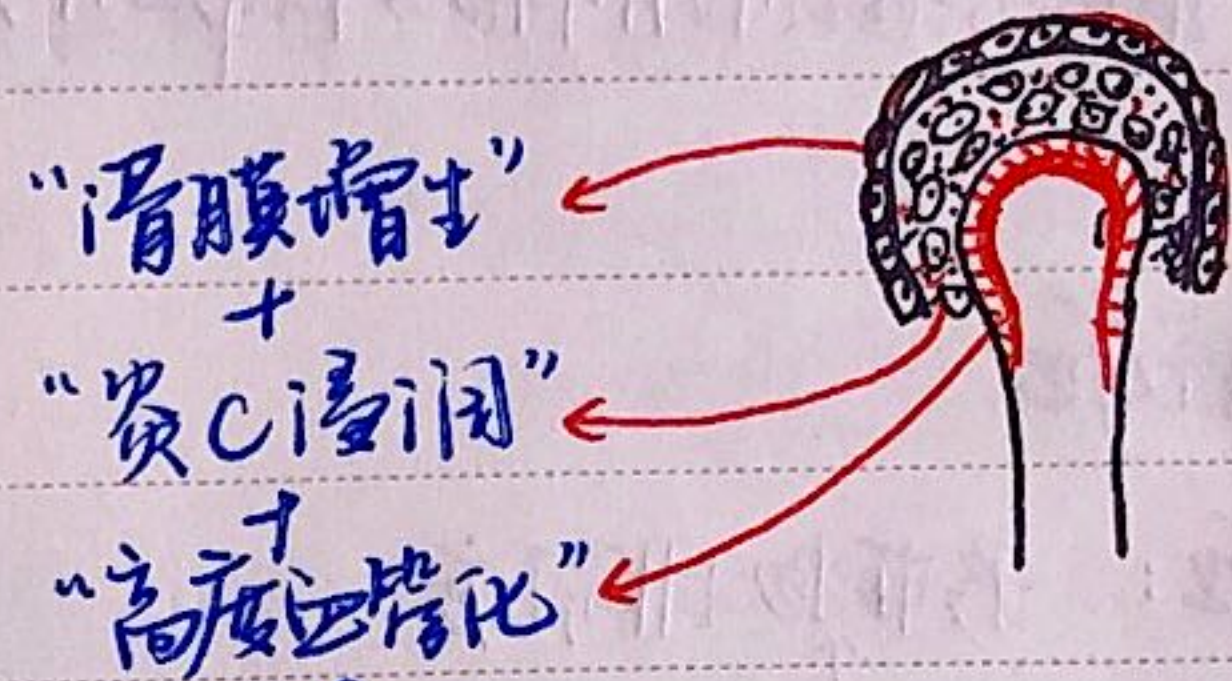 “滑膜增生”
+
“炎C浸润”
+
“高度血管化”